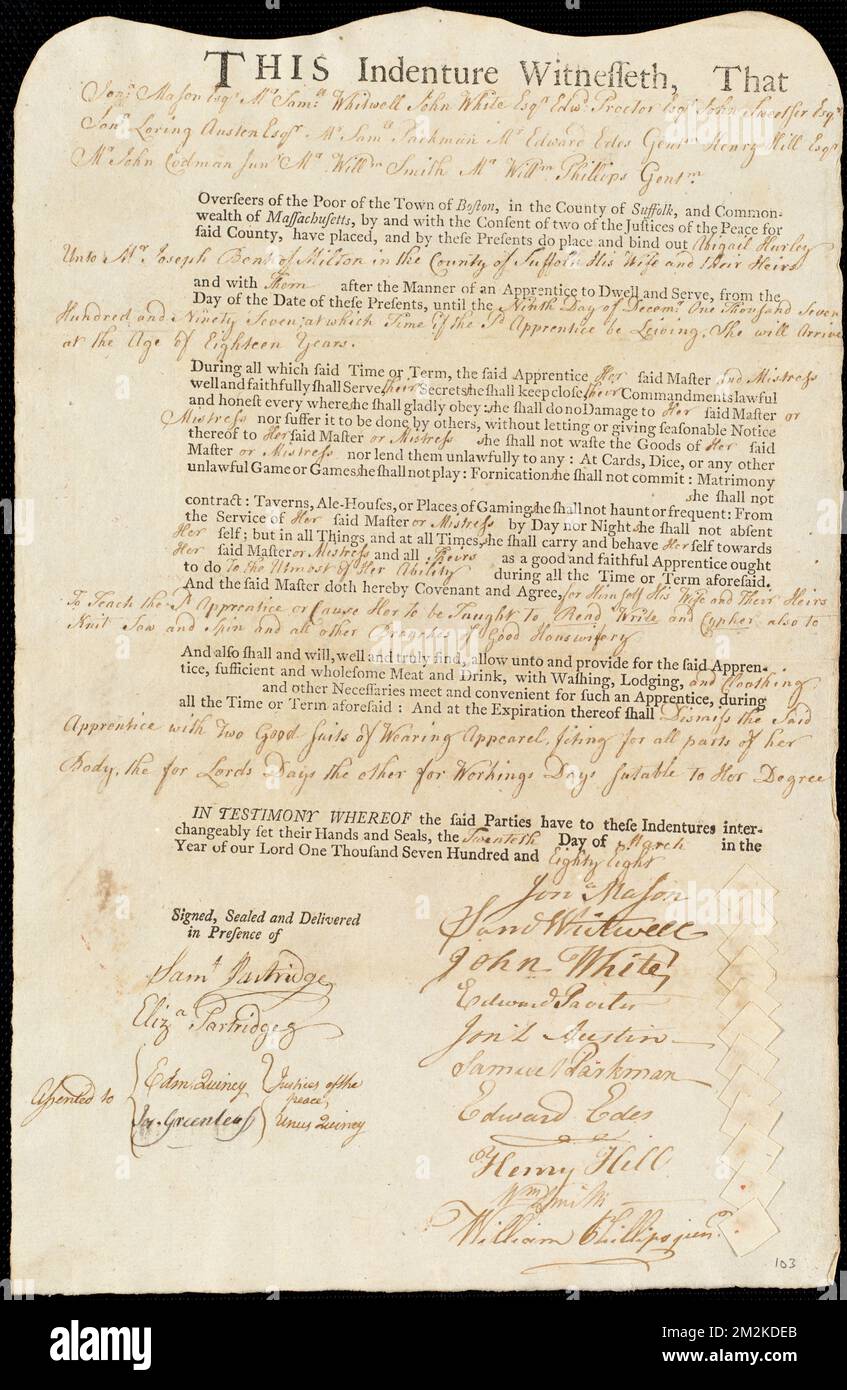 THIS Indenture Witneſſeth, That
Jonn Mason Esqr Mr Saml Whitwell John White Esqr Edwd Proctor Esqr John Sweetser Esqr
Jonn Loring Austen Esqr Mr Saml Parkman Mr Edward Edes Gentm Henry Hill Esqr
Mr John Codman Junr Mr Willm Smith Mr Willm Phillips Gentm
Overſeers of the Poor of the Town of Boſton, in the County of Suffolk, and Common-
wealth of Maſſachuſetts, by and with the Conſent of two of the Juſtices of the Peace for
ſaid County, have placed, and by theſe Preſents do place and bind out Abigail Hurley
Unto Mr Joseph Bent of Milton in the County of Suffolk His Wife and their Heirs
and with Them after the Manner of an Apprentice to Dwell and Serve, from the
Day of the Date of theſe Preſents, until the Ninth Day of Decemr One Thousand Seven
Hundred and Ninety Seven, at which Time if the Sd Apprentice be Leiving, She will Arrive
at the Age of Eighteen Years.
During all which ſaid Time or Term, the ſaid Apprentice Her ſaid Maſter and Mistress
well and faithfully ſhall Serve, their Secrets ſhe ſhall keep cloſe, their Commandments lawful
and honeſt every where, ſhe ſhall gladly obey: ſhe ſhall do no Damage to Her ſaid Maſter or
Mistress nor ſuffer it to be done by others, without letting or giving ſeaſonable Notice
thereof to Her ſaid Maſter or Mistress ſhe ſhall not waſte the Goods of Her ſaid
Maſter or Mistress nor lend them unlawfully to any: At Cards, Dice, or any other
unlawful Game or Games, ſhe ſhall not play: Fornication, ſhe ſhall not commit: Matrimony
ſhe ſhall not
contract: Taverns, Ale-Houſes, or Places of Gaming, ſhe ſhall not haunt or frequent: From
the Service of Her ſaid Maſter or Mistress by Day nor Night, ſhe ſhall not abſent
Her ſelf; but in all Things, and at all Times, ſhe ſhall carry and behave Her ſelf towards
Her ſaid Maſter or Mistress and all Theirs as a good and faithful Apprentice ought
to do to the Utmost of Her Ability during all the Time or Term aforeſaid.
And the ſaid Maſter doth hereby Covenant and Agree, for Himself His Wife and Their Heirs
To Teach the Sd Apprentice or Cause Her to be Taught to Read Write and Cypher also to
Knit Sow and Spin and all other Branches of Good Houswifery
And alſo ſhall and will, well and truly find, allow unto and provide for the ſaid Appren-
tice, ſufficient and wholeſome Meat and Drink, with Waſhing, Lodging, and Cloathing
and other Neceſſaries meet and convenient for ſuch an Apprentice, during
all the Time or Term aforeſaid: And at the Expiration thereof ſhall Dismiss the Said
Apprentice with two Good suits of Wearing Appearel, fiting for all parts of her
Body, the for Lords Days the other for Workings Days sutable to Her Degree
IN TESTIMONY WHEREOF the ſaid Parties have to theſe Indentures inter-
changeably ſet their Hands and Seals, the Twenteth Day of March in the
Year of our Lord One Thouſand Seven Hundred and Eighty Eight
Jona Mason
Signed, Sealed and Delivered
in Preſence of
Saml Whitwell
John White
Saml Partridge
Edward Proctor
Eliza Partridge
Jon L Austin
Samuel Parkman
Assented to
Edm. Quincy Justices of the
peace
Jos. Greenleaf Unus Quincy
Edward Edes
Henry Hill
Wm Smith
William Phillips junr
103
alamy
alamy
alamy
Image ID: 2M2KDEB
www.alamy.com